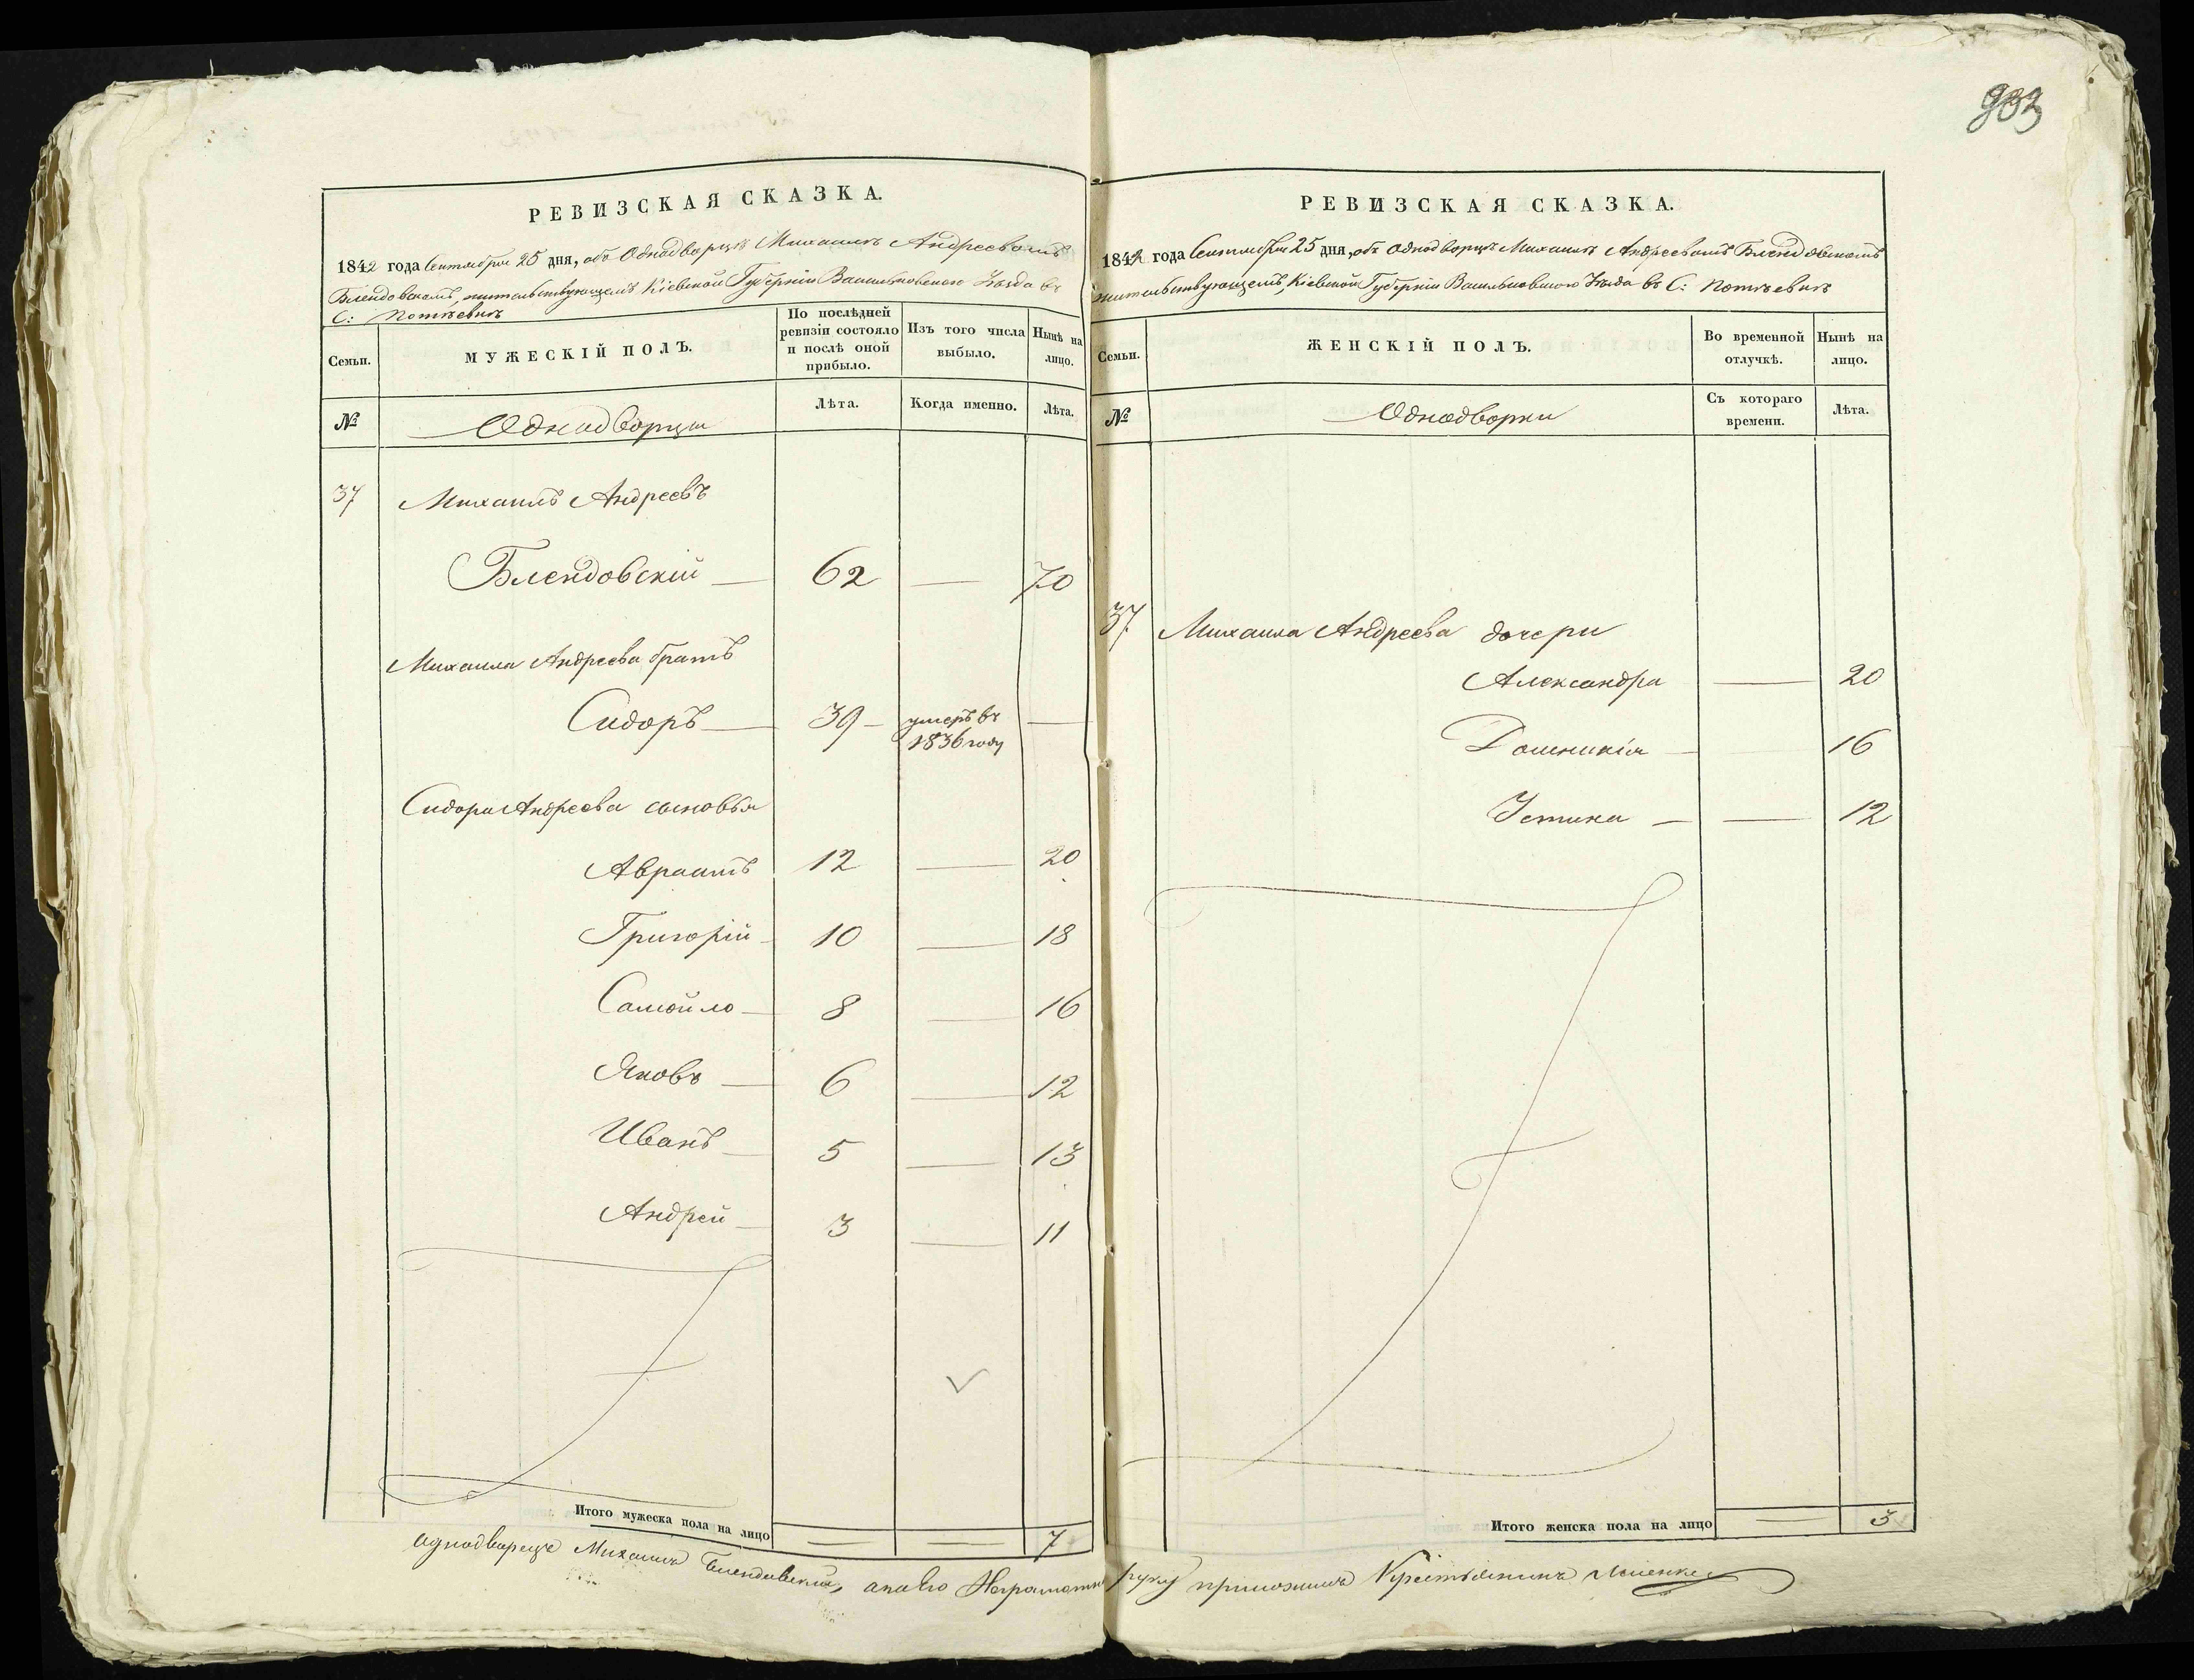 РЕВИЗСКАЯ СКАЗКА.
1842 года Сентября 25 дня, объ Однодворцѣ Михаилѣ Андреевомъ
Блендовскомъ, жительствующемъ Кіевской Губерніи Васильковскаго Уѣзда въ
С: Потіевкѣ
Семьи.
МУЖЕСКІЙ ПОЛЪ.
По послѣдней ревизіи состояло и послѣ оной прибыло.
Изъ того числа выбыло.
Нынѣ на лицо.
№
Однодворцы
Лѣта.
Когда именно.
Лѣта.
37 Михаилъ Андреевъ
Блендовскій — 62 — 70
Михаила Андреева братъ
Сидоръ — 39 — умеръ въ 1836 году —
Сидора Андреева сыновья
Авраамъ 12 — 20
Григорій — 10 — 18
Самойло — 8 — 16
Яковъ — 6 — 12
Иванъ — 5 — 13
Андрей — 3 — 11
Итого мужеска пола на лицо 7
РЕВИЗСКАЯ СКАЗКА.
1842 года Сентября 25 дня, объ Однодворцѣ Михаилѣ Андреевомъ Блендовскомъ
жительствующемъ, Кіевской Губерніи Васильковского Уѣзда въ С: Потіевкѣ
Семьи.
ЖЕНСКІЙ ПОЛЪ.
Во временной отлучкѣ.
Нынѣ на лицо.
№
Однодворки
Съ котораго времени.
Лѣта.
37. Михаила Андреева дочери
Александра — 20
Домникія — 16
Устина — — 12
Итого женска пола на лицо 3
однодворецъ Михаилъ Блендовскій, а по его руку приложилъ Крестьянинъ